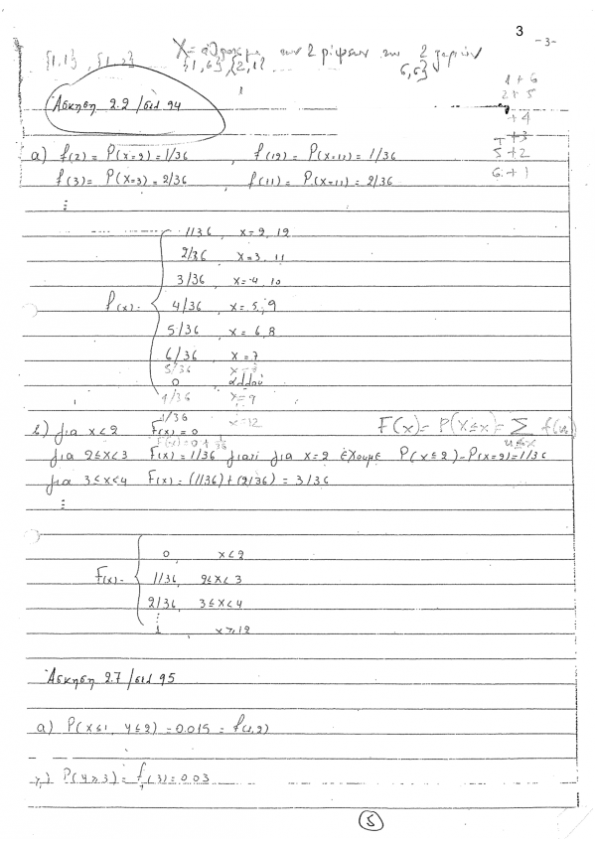 3
-3-
X = άθροισμα των 2 ρίψεων των 2 ζαριών
{1,1}, {1,2} {1,6}, {2,1} 6,6}
1+6
2+5
+4
+3
5+2
6+1
Άσκηση 2.2 /σελ 94
α) f(2) = P(X=2) = 1/36 , f(12) = P(X=12) = 1/36
f(3) = P(X=3) = 2/36 f(11) = P(X=11) = 2/36
⋮
1/36 , x=2, 12
2/36 x=3, 11
3/36 , x=4, 10
f(x) = { 4/36 , x=5, 9
5/36 , x=6,8
6/36 , x=7
5/36
0 , αλλού
4/36 x=9
1/36 x=12
β) για x<2 F(x) = 0 F(x) = P(X≤x) = Σ f(u)
u≤x
F(x) = 0 + 1/36
για 2≤x<3 F(x) = 1/36 γιατί για x=2 έχουμε P(x≤2) = P(x=2) = 1/36
για 3≤x<4 F(x) = (1/36)+(2/36) = 3/36
⋮
0 , x<2
F(x) = { 1/36, 2≤x<3
2/36, 3≤x<4
⋮
1 x≥12
Άσκηση 2.7 /σελ 95
α) P(X≤1, Y≤2) = 0.015 = f(1,2)
γ) P(Y≥3) = f(3) = 0.03
5